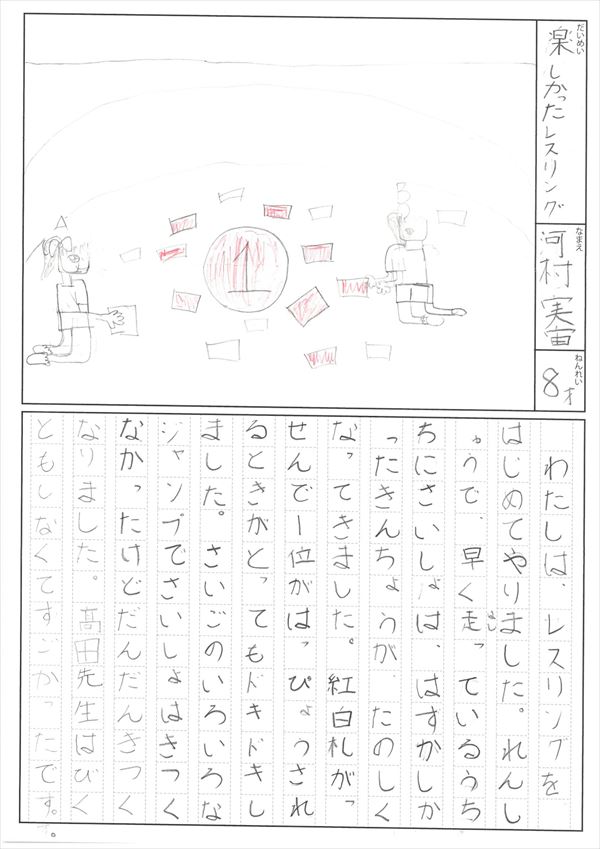 だいめい
楽しかったレスリング
なまえ
河村実宙
ねんれい
8才
1
わたしは、レスリングを
はじめてやりました。れんし
ゅうで、早く走っているうち
はし
ちにさいしょは、はずかしか
ったきんちょうが、たのしく
なってきました。紅白札がっ
せんで一位がはっぴょうされ
るときがとってもドキドキし
ました。さいごのいろいろな
ジャンプでさいしょはきつく
なかったけどだんだんきつく
なりました。髙田先生はびく
ともしなくてすごかったです。